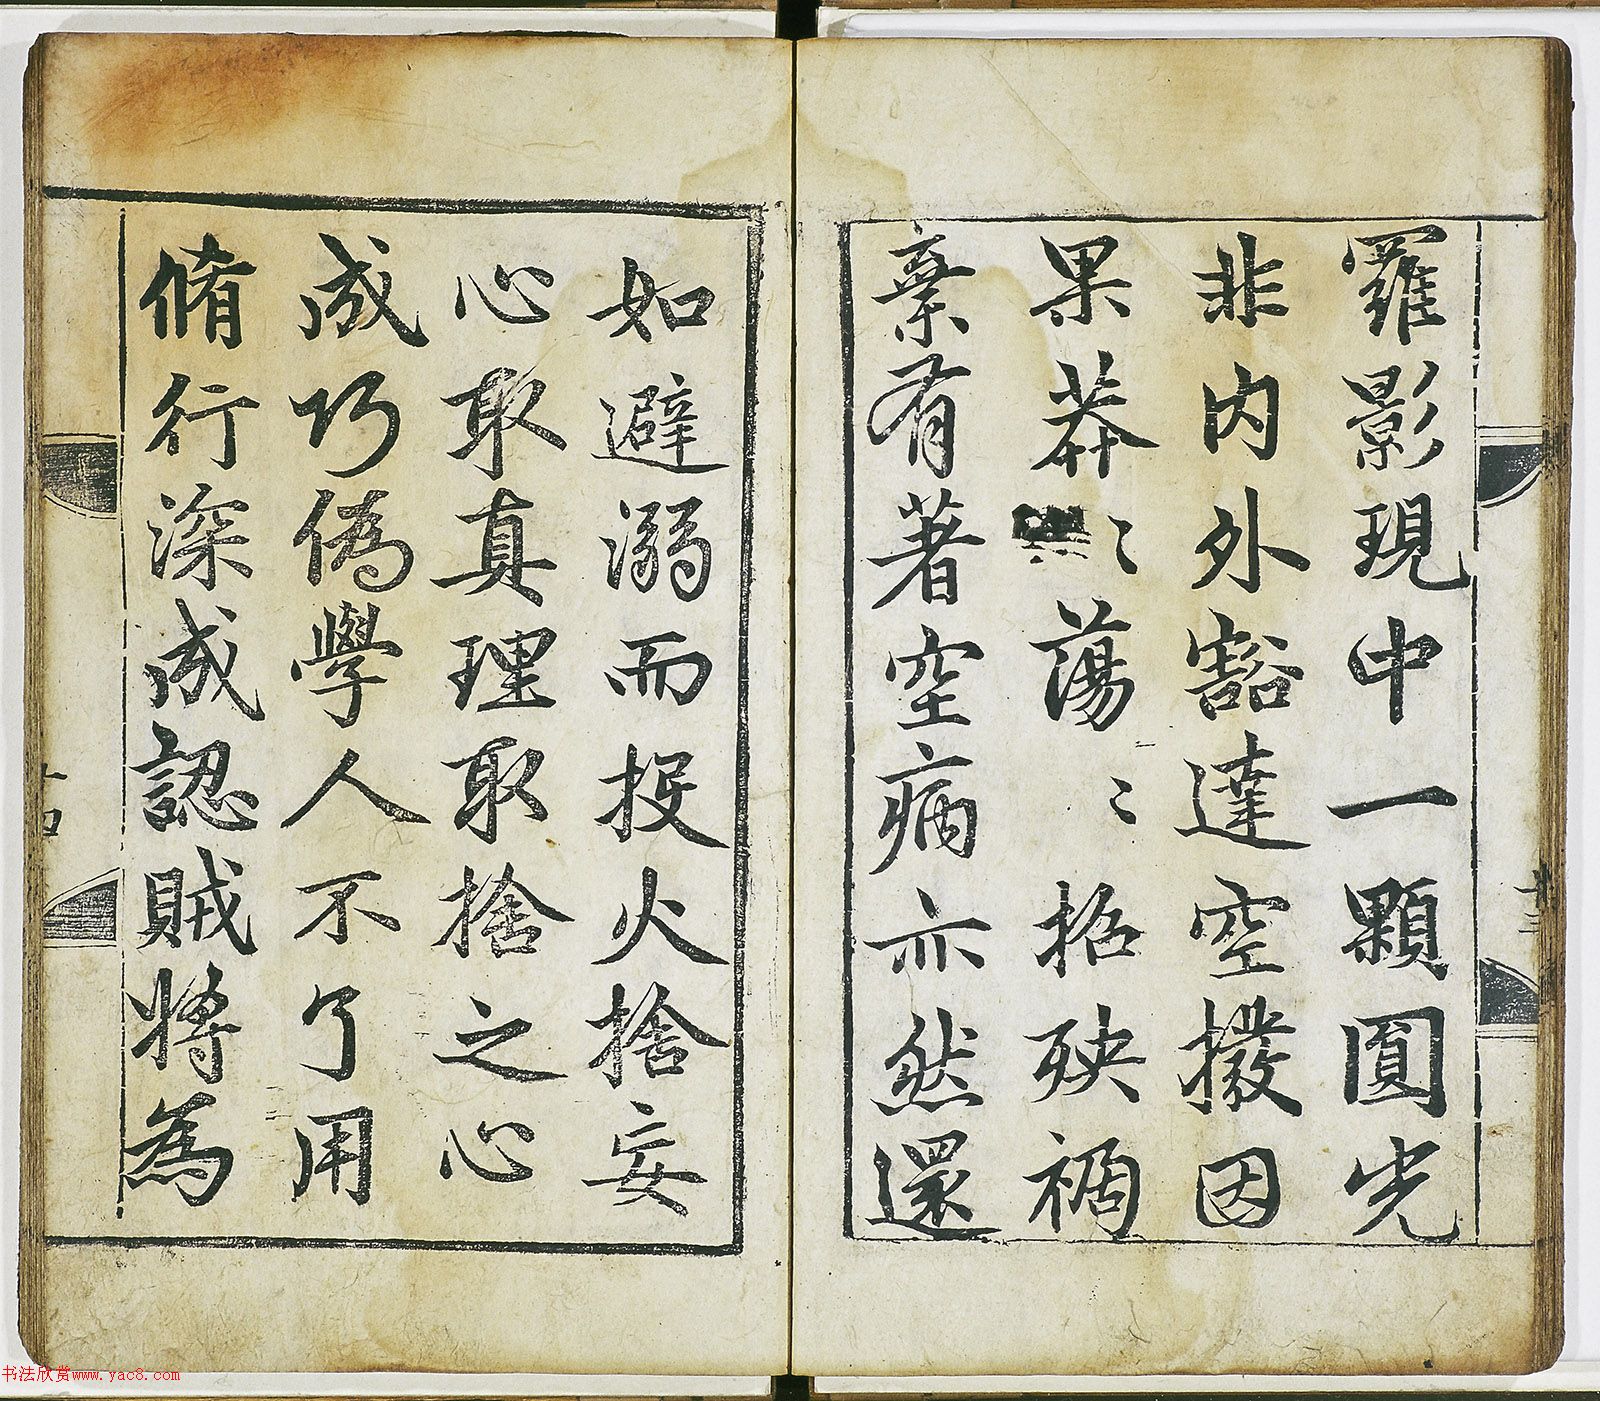 羅影現中一顆圓光
非内外豁達空撥因
果莽〻蕩〻招殃禍
棄有著空病亦然還
如避溺而投火捨妄
心取真理取捨之心
成巧偽學人不了用
脩行深成認賊將為
书法欣赏www.yac8.com